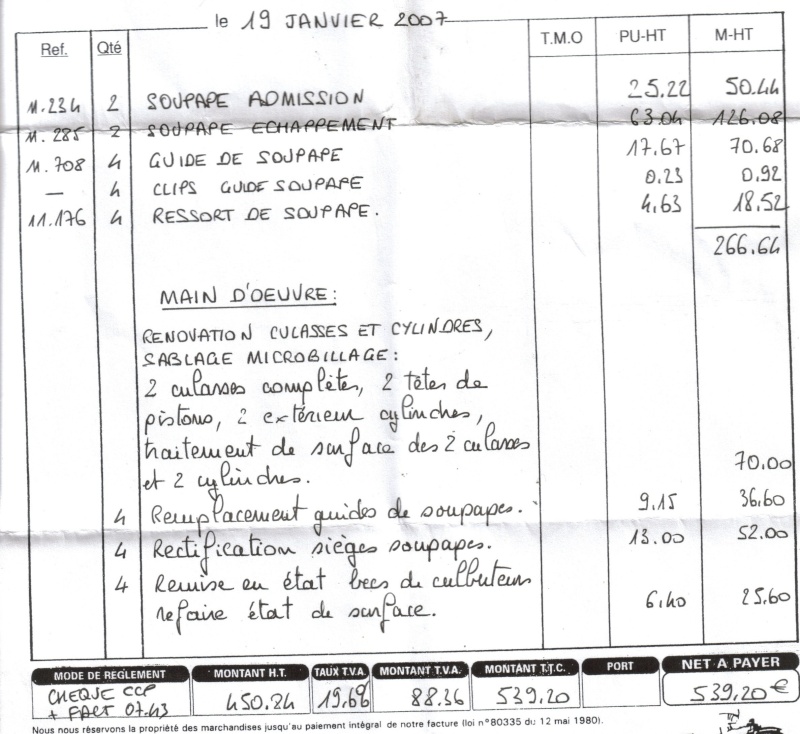 le 19 JANVIER 2007
Ref. Qté T.M.O PU-HT M-HT
M.234 2 SOUPAPE ADMISSION 25.22 50.44
M.285 2 SOUPAPE ECHAPPEMENT 63.04 126.08
M.708 4 GUIDE DE SOUPAPE 17.67 70.68
— 4 CLIPS GUIDE SOUPAPE 0.23 0.92
11.176 4 RESSORT DE SOUPAPE. 4.63 18.52
266.64
MAIN D'OEUVRE:
RENOVATION CULASSES ET CYLINDRES,
SABLAGE MICROBILLAGE:
2 culasses complètes, 2 têtes de
pistons, 2 extérieur cylindres,
traitement de surface des 2 culasses
et 2 cylindres. 70.00
4 Remplacement guides de soupapes. 9.15 36.60
4 Rectification sièges soupapes. 13.00 52.00
4 Remise en état becs de culbuteurs
refaire état de surface. 6.40 25.60
MODE DE REGLEMENT MONTANT H.T. TAUX T.V.A. MONTANT T.V.A. MONTANT T.T.C. PORT NET A PAYER
CHEQUE CCP 450.84 19,6% 88.36 539,20 539,20€
+ FACT 07.43
Nous nous réservons la propriété des marchandises jusqu'au paiement intégral de notre facture (loi n°80335 du 12 mai 1980).